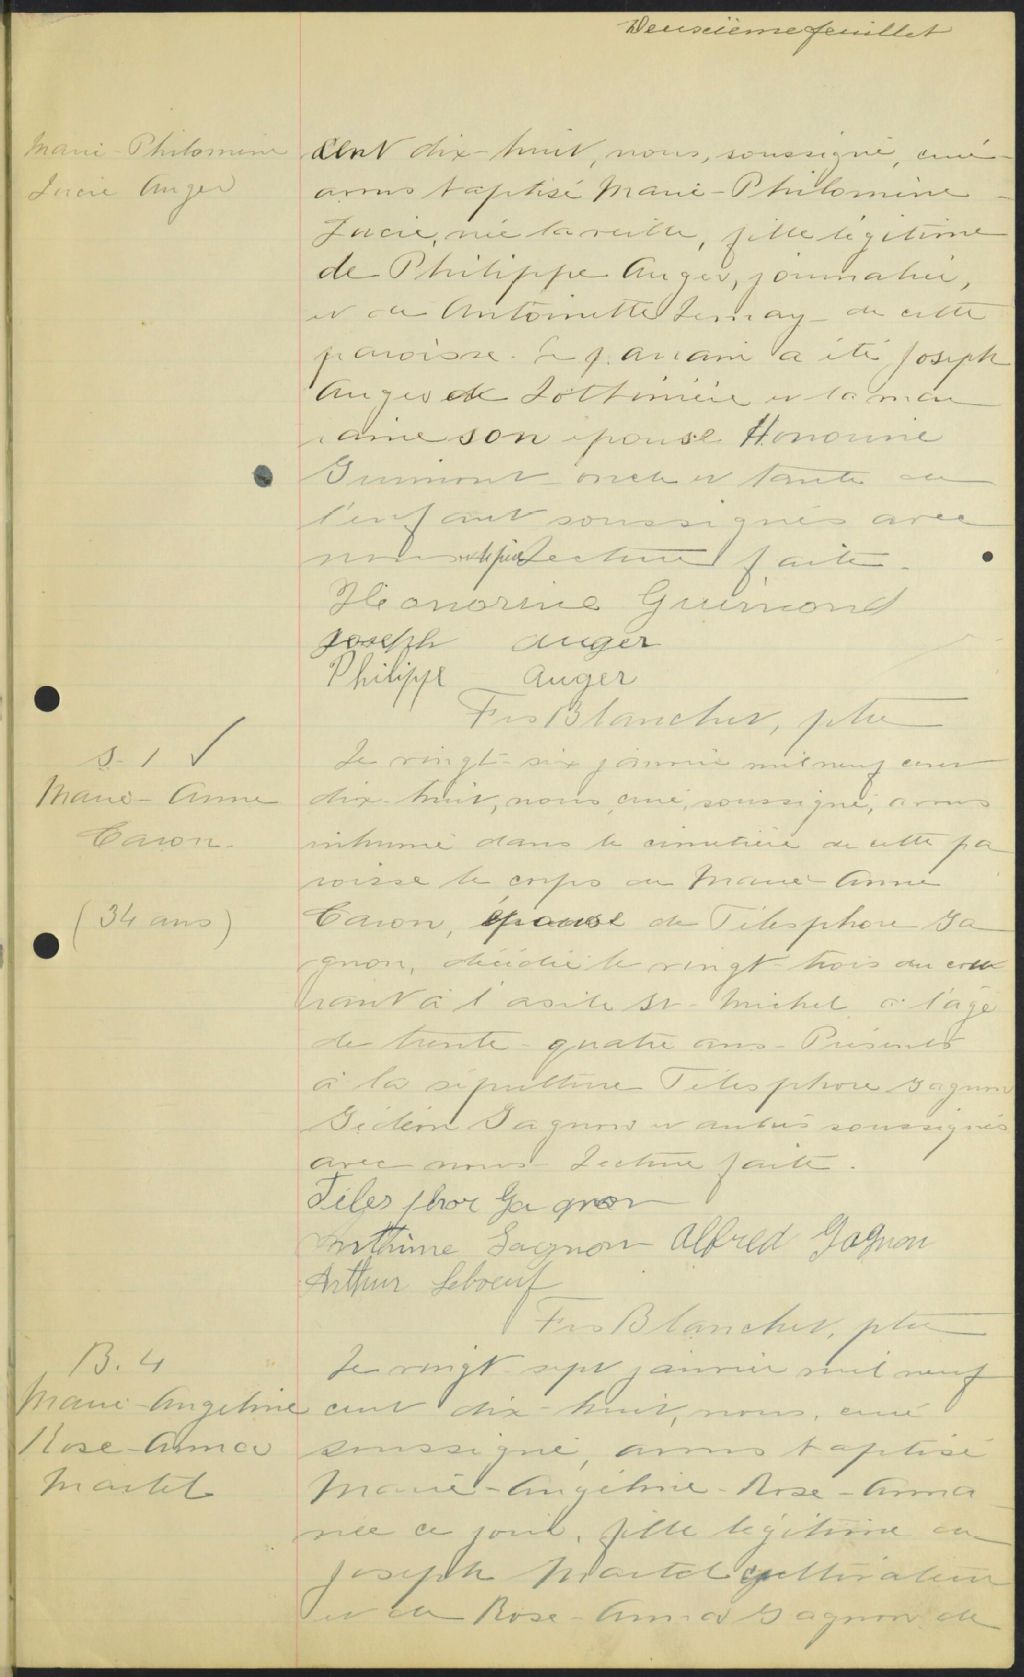 Deuxième feuillet
Marie-Philomène
Lucie Auger
cent dix-huit, nous, soussigné, curé
avons baptisé Marie-Philomène
Lucie, née la veille, fille légitime
de Philippe Auger, journalier,
et de Antoinette Lemay de cette
paroisse. Le parrain a été Joseph
Auger de Lotbinière et la mar
raine son épouse Honorine
Guimont oncle et tante de
l'enfant soussignés avec
nous Lecture faite.
Héonorine Guimond
Joseph Auger
Philippe Auger
Frs Blanchet, ptre
S. 1 ✓
Marie-Anne
Caron.
(34 ans)
Le vingt-six janvier mil neuf cent
dix-huit, nous, curé, soussigné, avons
inhumé dans le cimetière de cette pa
roisse le corps de Marie Anne
Caron, épouse de Télesphore Ga
gnon, décédée le vingt-trois du cou
rant à l'asile St-Michel à l'âge
de trente-quatre ans - Présents
à la sépulture Télesphore Gagnon
Gédéon Gagnon et autres soussignés
avec nous Lecture faite.
Telesphor Gagnon
Anthime Gagnon Alfred Gagnon
Arthur Leboeuf
Frs Blanchet, ptre
B. 4
Marie-Angéline
Rose-Anna
Martel
Le vingt-sept janvier mil neuf
cent dix-huit, nous, curé
soussigné, avons baptisé
Marie-Angéline-Rose-Anna
née ce jour, fille légitime de
Joseph Martel cultivateur
et de Rose-Anna Gagnon de